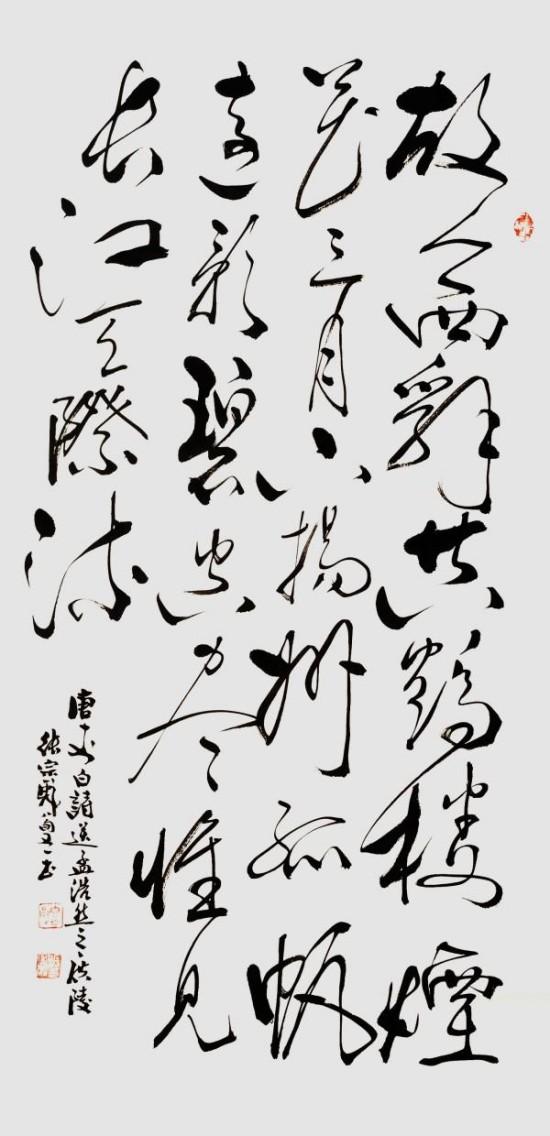 故人西辭黃鶴樓煙
花三月下揚州孤帆
遠影碧空盡惟見
長江天際流
唐李白詩送孟浩然之廣陵
張宗